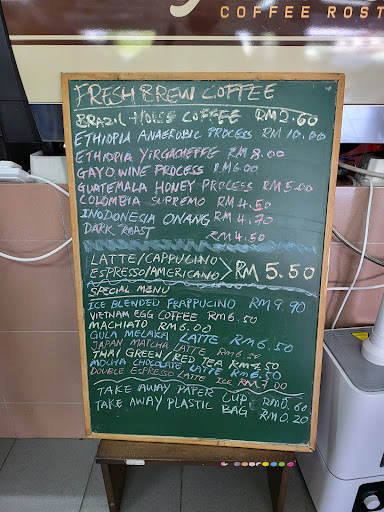 COFFEE ROST
FRESH BREW COFFEE
BRAZIL HOUSE COFFEE RM2.60
ETHIOPIA ANAEROBIC PROCESS RM 10.00
ETHIOPIA YIRGACHEFFE RM 8.00
GAYO WINE PROCESS RM6.00
GUATEMALA HONEY PROCESS RM 5.00
COLOMBIA SUPREMO RM 4.50
INDONEGIA ONANG RM 4.70
DARK ROAST RM 4.50
LATTE/CAPPUCINO
ESPRESSO/AMERICANO > RM 5.50
SPECIAL MENU
ICE BLENDED FRAPPUCINO RM 9.90
VIETNAM EGG COFFEE RM 6.50
MACHIATO RM 6.00
GULA MELAKA LATTE RM 6.50
JAPAN MATCHA LATTE RM 6.50
THAI GREEN/RED TEA RM 7.50
MOCHA CHOCOLATE LATTE RM 6.50
DOUBLE ESPRESSO LATTE ICE RM 7.00
TAKE AWAY PAPER CUP RM 0.60
TAKE AWAY PLASTIC BAG RM 0.20